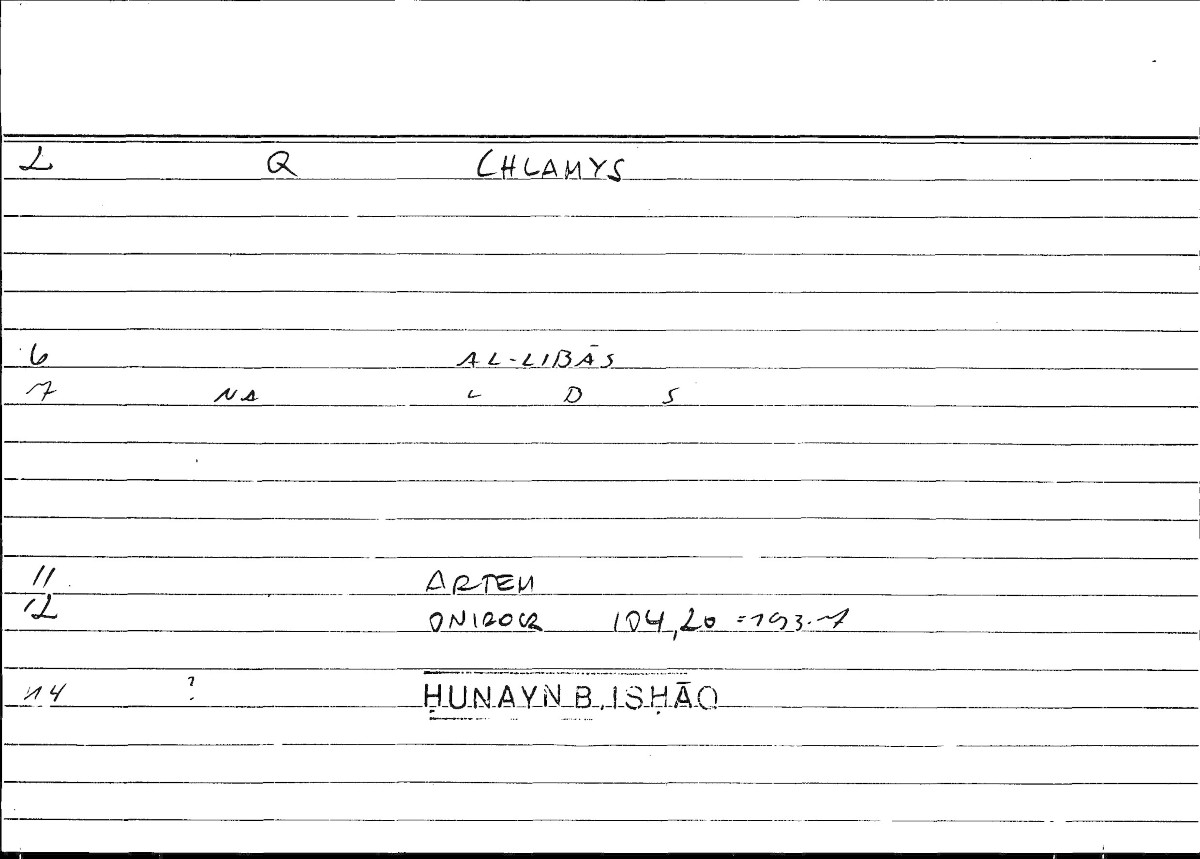 2 Q CHLAMYS
6 AL-LIBĀS
7 NA L D S
11 ARTEM
12 ONIROCR 104,20 = 193.7
14 ? ḤUNAYN B. ISḤĀQ